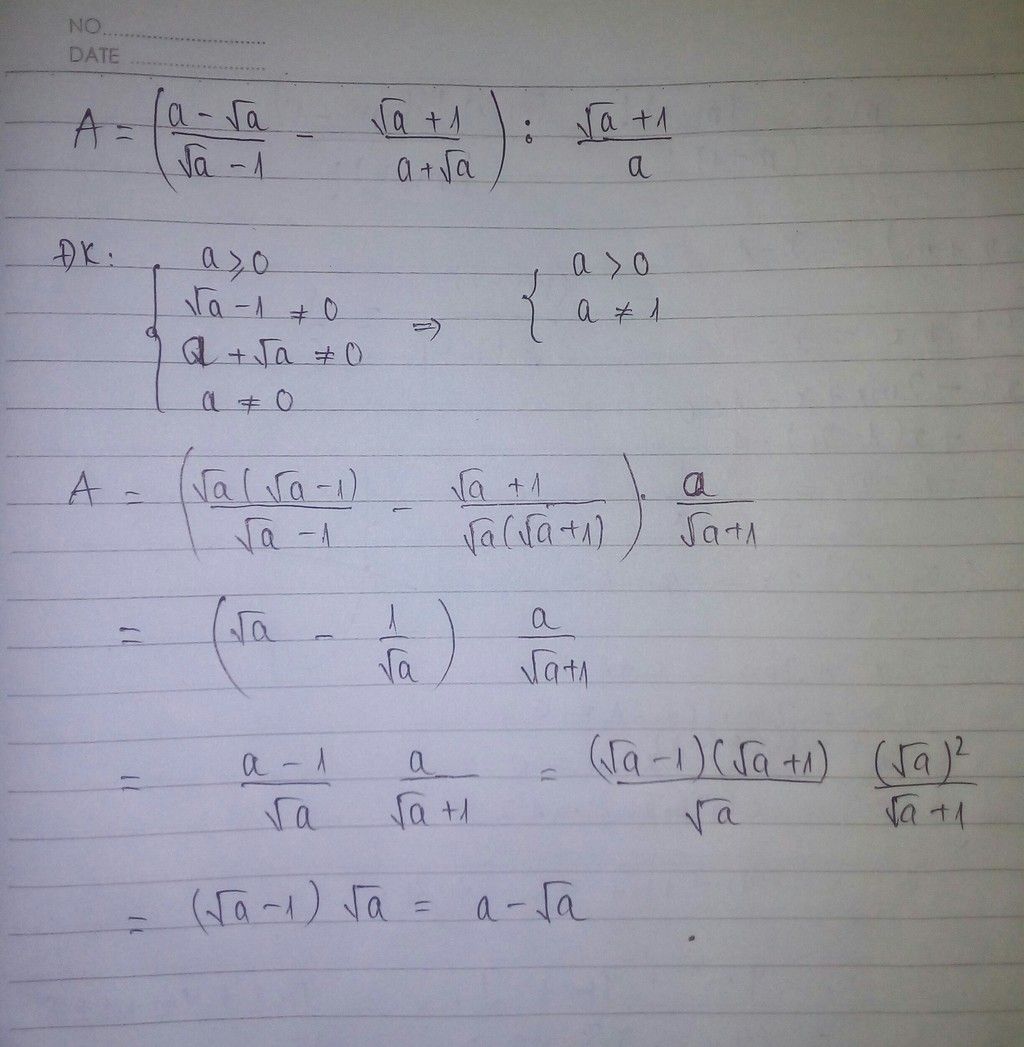 NO
DATE
A = ( (a - √a)/(√a - 1) - (√a + 1)/(a + √a) ) : (√a + 1)/a
ĐK: { a ⩾ 0
√a - 1 ≠ 0
a + √a ≠ 0
a ≠ 0
⇒ { a > 0
a ≠ 1
A = ( √a(√a - 1)/(√a - 1) - (√a + 1)/(√a(√a + 1)) ) . a/(√a + 1)
= ( √a - 1/√a ) a/(√a + 1)
= (a - 1)/√a a/(√a + 1) = (√a - 1)(√a + 1)/√a (√a)²/(√a + 1)
= (√a - 1) √a = a - √a